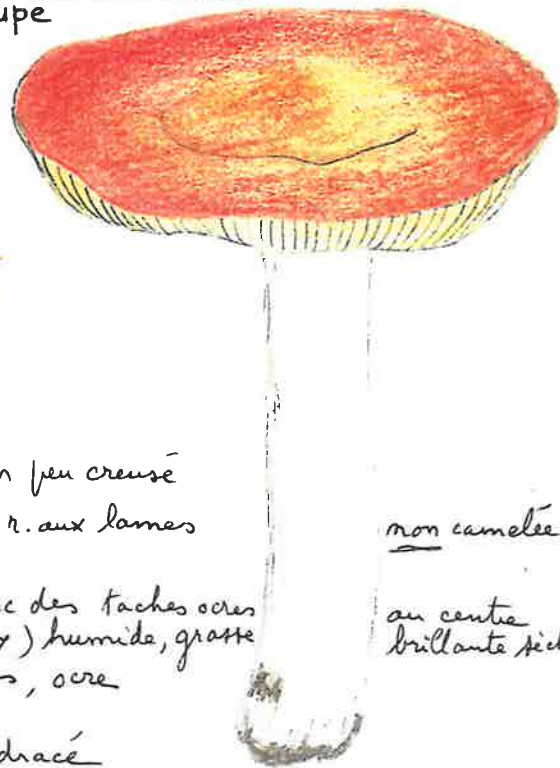 upe
n peu creusé
r. aux lames non camelée
c des taches ocres au centre
) humide, grasse brillante sèc
s, ocre
dracé